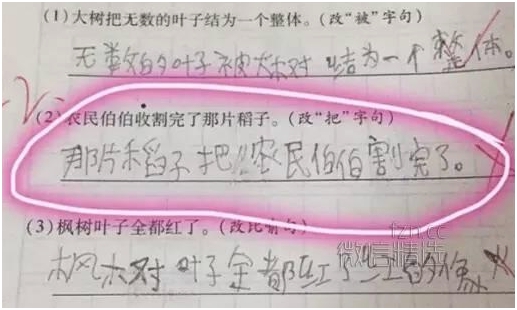 (1)大树把无数的叶子结为一个整体。(改“被”字句)
无数的叶子被大树结为一个整体。
-2
(2)农民伯伯收割完了那片稻子。(改“把”字句)
那片稻子把农民伯伯割完了。
(3)枫树叶子全都红了。(改比喻句)
枫树叶子全都红了红的像火
fzn.cc
微信精选